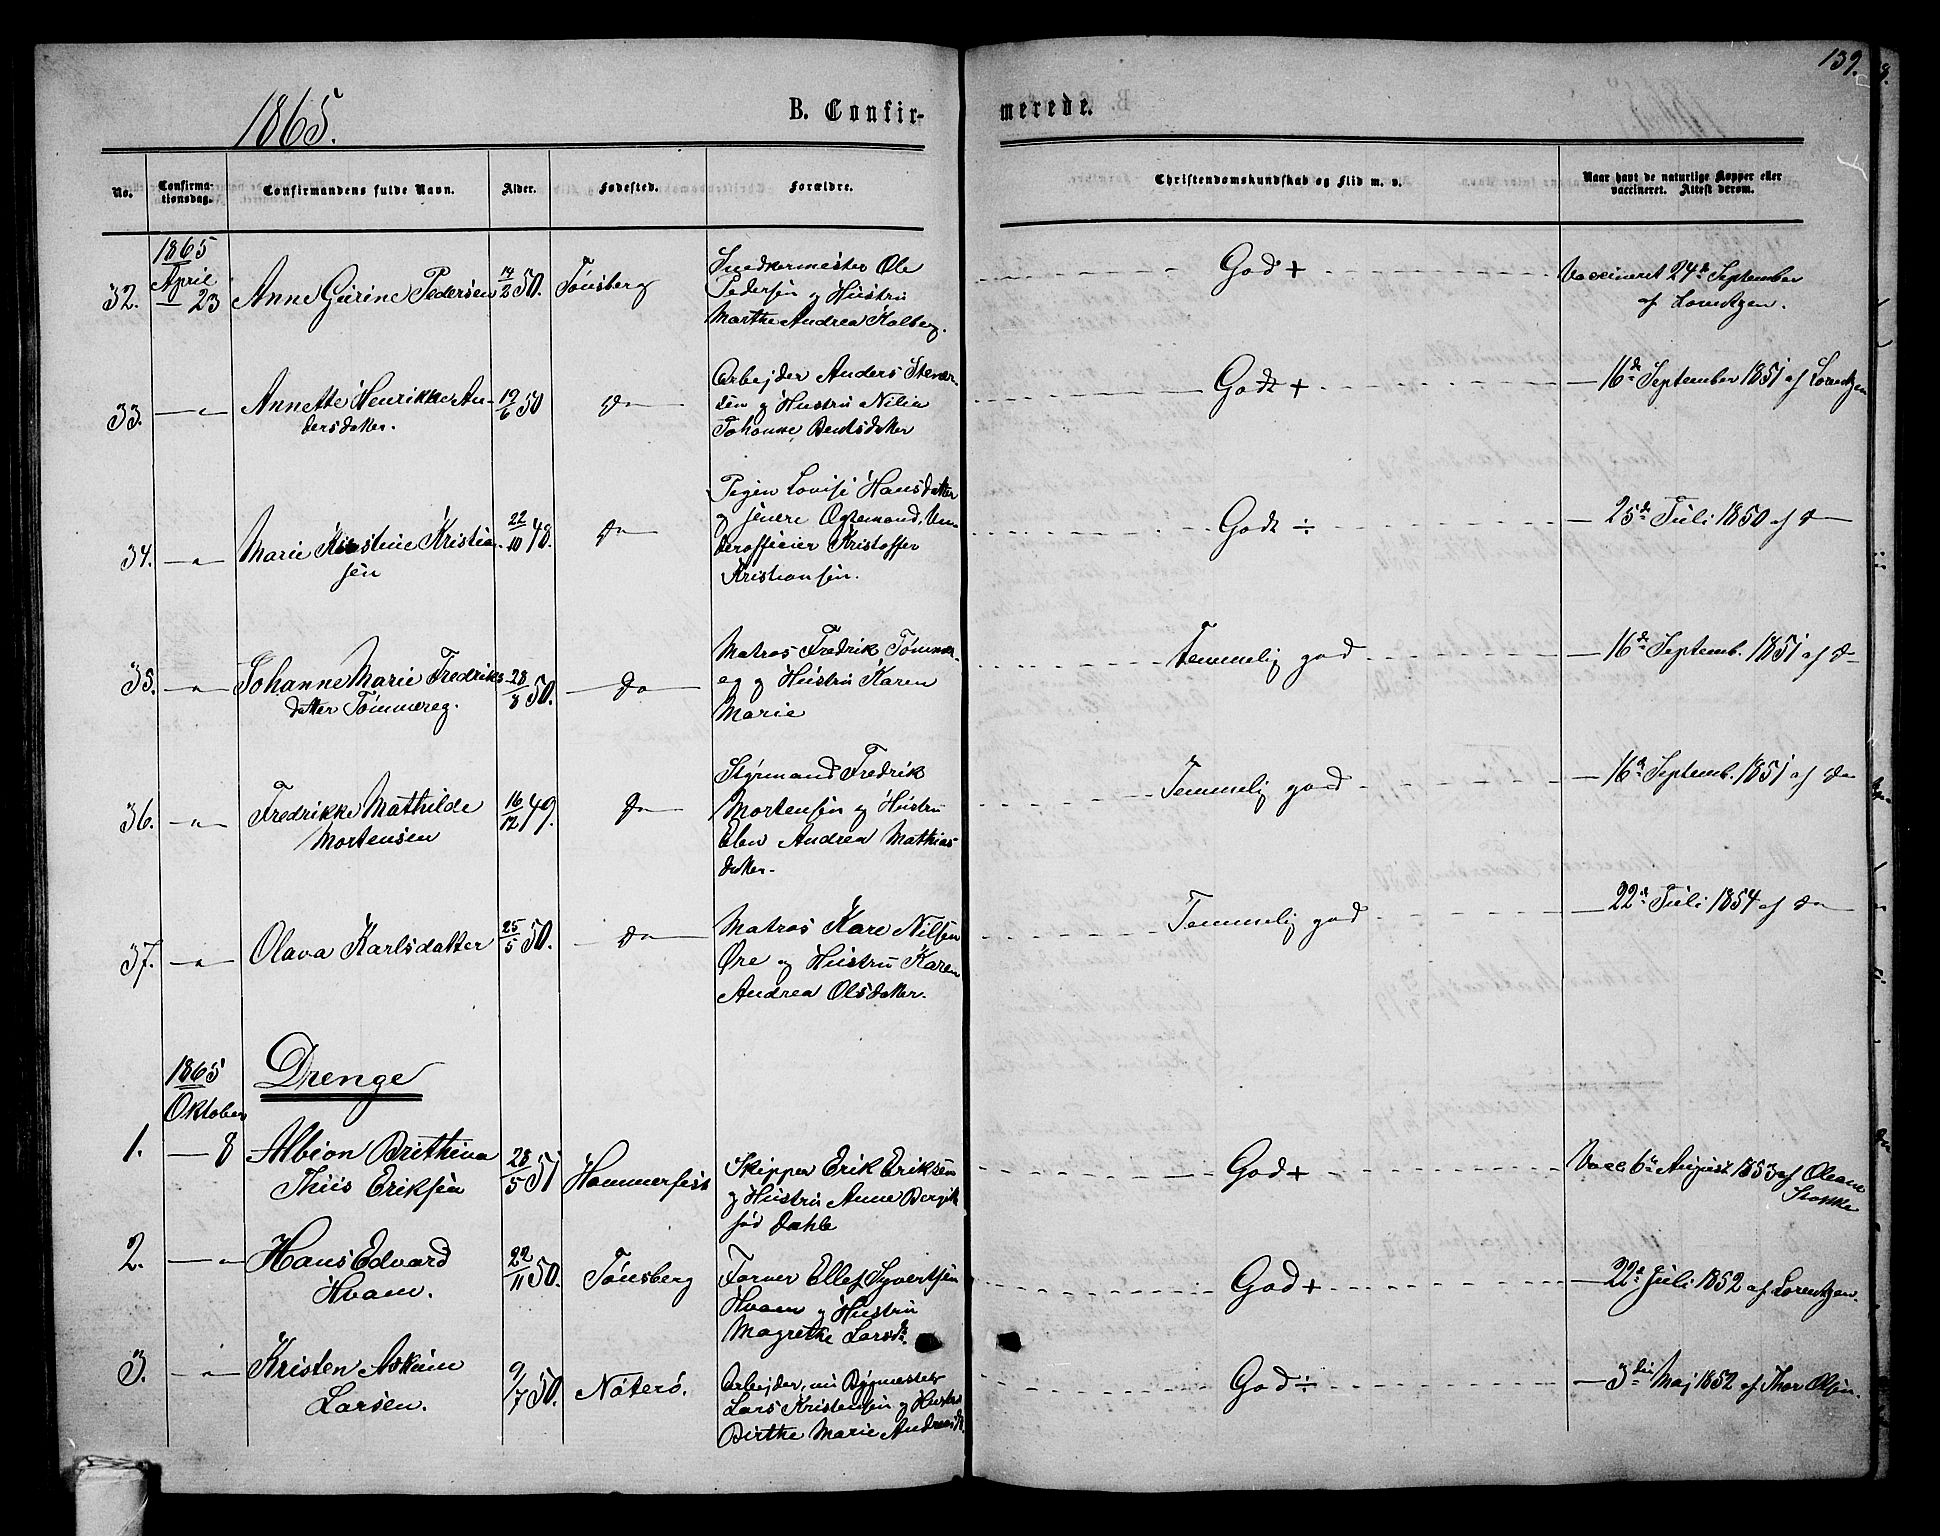 139.
1865.
B. Confir-
merede.
No.
Confirma-
tionsdag.
Confirmandens fulde Navn.
Alder.
Fødested.
Forældre.
Christendomskundskab og Flid m. v.
Naar havt de naturlige Kopper eller
vaccineret. Attest derom.
1865
April
32. — 23 Anne Gurine Pedersen 14/2 50. Tønsberg
Snedkermester Ole
Pedersen og Hustru
Marthe Andrea Kolberg.
God +
Vaccineret 24de September
af Lorentzen.
33. — " — Annette Henrikke An-
dersdatter. 19/6 50 do
Arbejder Anders
sen og Hustru Nilia
Johanne Bentsdatter
Godt +
— 16de September 1851 af Lorentzen
34. — " — Marie Kirstine Kristian-
sen 22/10 48. do
Pigen Lovise Hansdatter
og senere Ægtemand, Un-
derofficier Kristoffer
Kristiansen.
Godt ÷
— 25de Juli 1850 af do
35. — " — Johanne Marie Fredriks-
datter Tømmereg. 28/8 50. do
Matros Fredrik Tømmer-
eg og Hustru Karen
Marie
Temmelig god
— 16de Septemb. 1851 af do
36. — " — Fredrikke Mathilde
Mortensen 16/12 49. do
Styrmand Fredrik
Mortensen og Hustru
Elen Andrea Mathias-
datter.
Temmelig god
— 16de Septemb. 1851 af do
37. — " — Olava Karlsdatter 25/5 50. do
Matros Kare Nilsen
Øre og Hustru Karen
Andrea Olsdatter.
Temmelig god
— 22de Juli 1854 af do
1865
Oktober
Drenge
1. — 8 Albion Brithina
Thiis Eriksen 28/5 51 Hammerfest
Skipper Erik Eriksen
og Hustru Anne Bergitte
fød Dahle
God +
Vacc 6te August 1853 af Oleane
2. — " Hans Edvard
Hvam. 22/11 50. Tønsberg
Farver Ellef Syvertsen
Hvam og Hustru
Magrethe Larsdt.
God +
— 22de Juli 1852 af Lorentzen.
3. — " Kristen Askum
Larsen. 9/7 50. Nøterø.
Arbejder, nu Bymester
Lars Kristensen og Hustru
Birthe Marie Andreasdt.
God ÷
— 3die Maj 1852 af Thor Olsen.